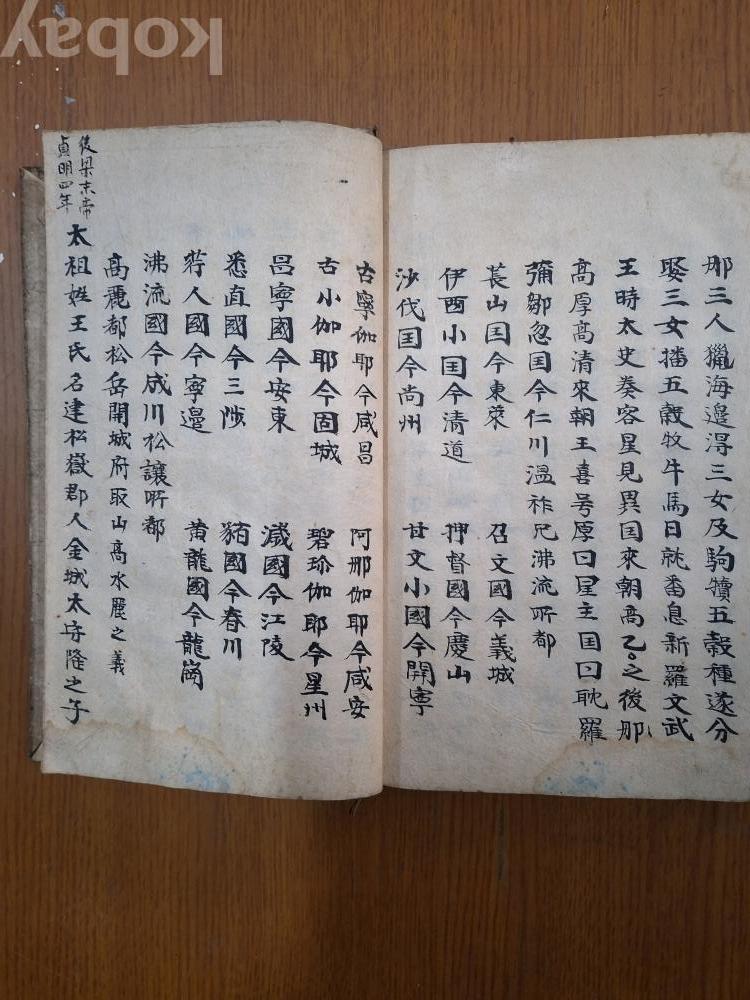 kobay
那三人獵海邊得三女及駒犢五穀種遂分
娶三女播五穀牧牛馬日就蕃息新羅文武
王時太史奏客星見異国來朝高乙〻之後那
高厚高清來朝王喜号厚曰星主国曰耽羅
彌鄒忽国今仁川温祚兄沸流所都
萇山国今東萊 召文國今義城
伊西小国今清道 押督國今慶山
沙伐国今尚州 甘文小國今開寧
古寧伽耶今咸昌 阿那伽耶今咸安
古小伽耶今固城 碧珍伽耶今星州
昌寧國今安東 濊國今江陵
悉直國今三陟 貊國今春川
荇人國今寧邊 黄龍國今龍崗
沸流國今成川松讓所都
高麗都松岳開城府取山高水麗之義
後梁末帝
貞明四年
太祖姓王氏名建松嶽郡人金城太守隆之子